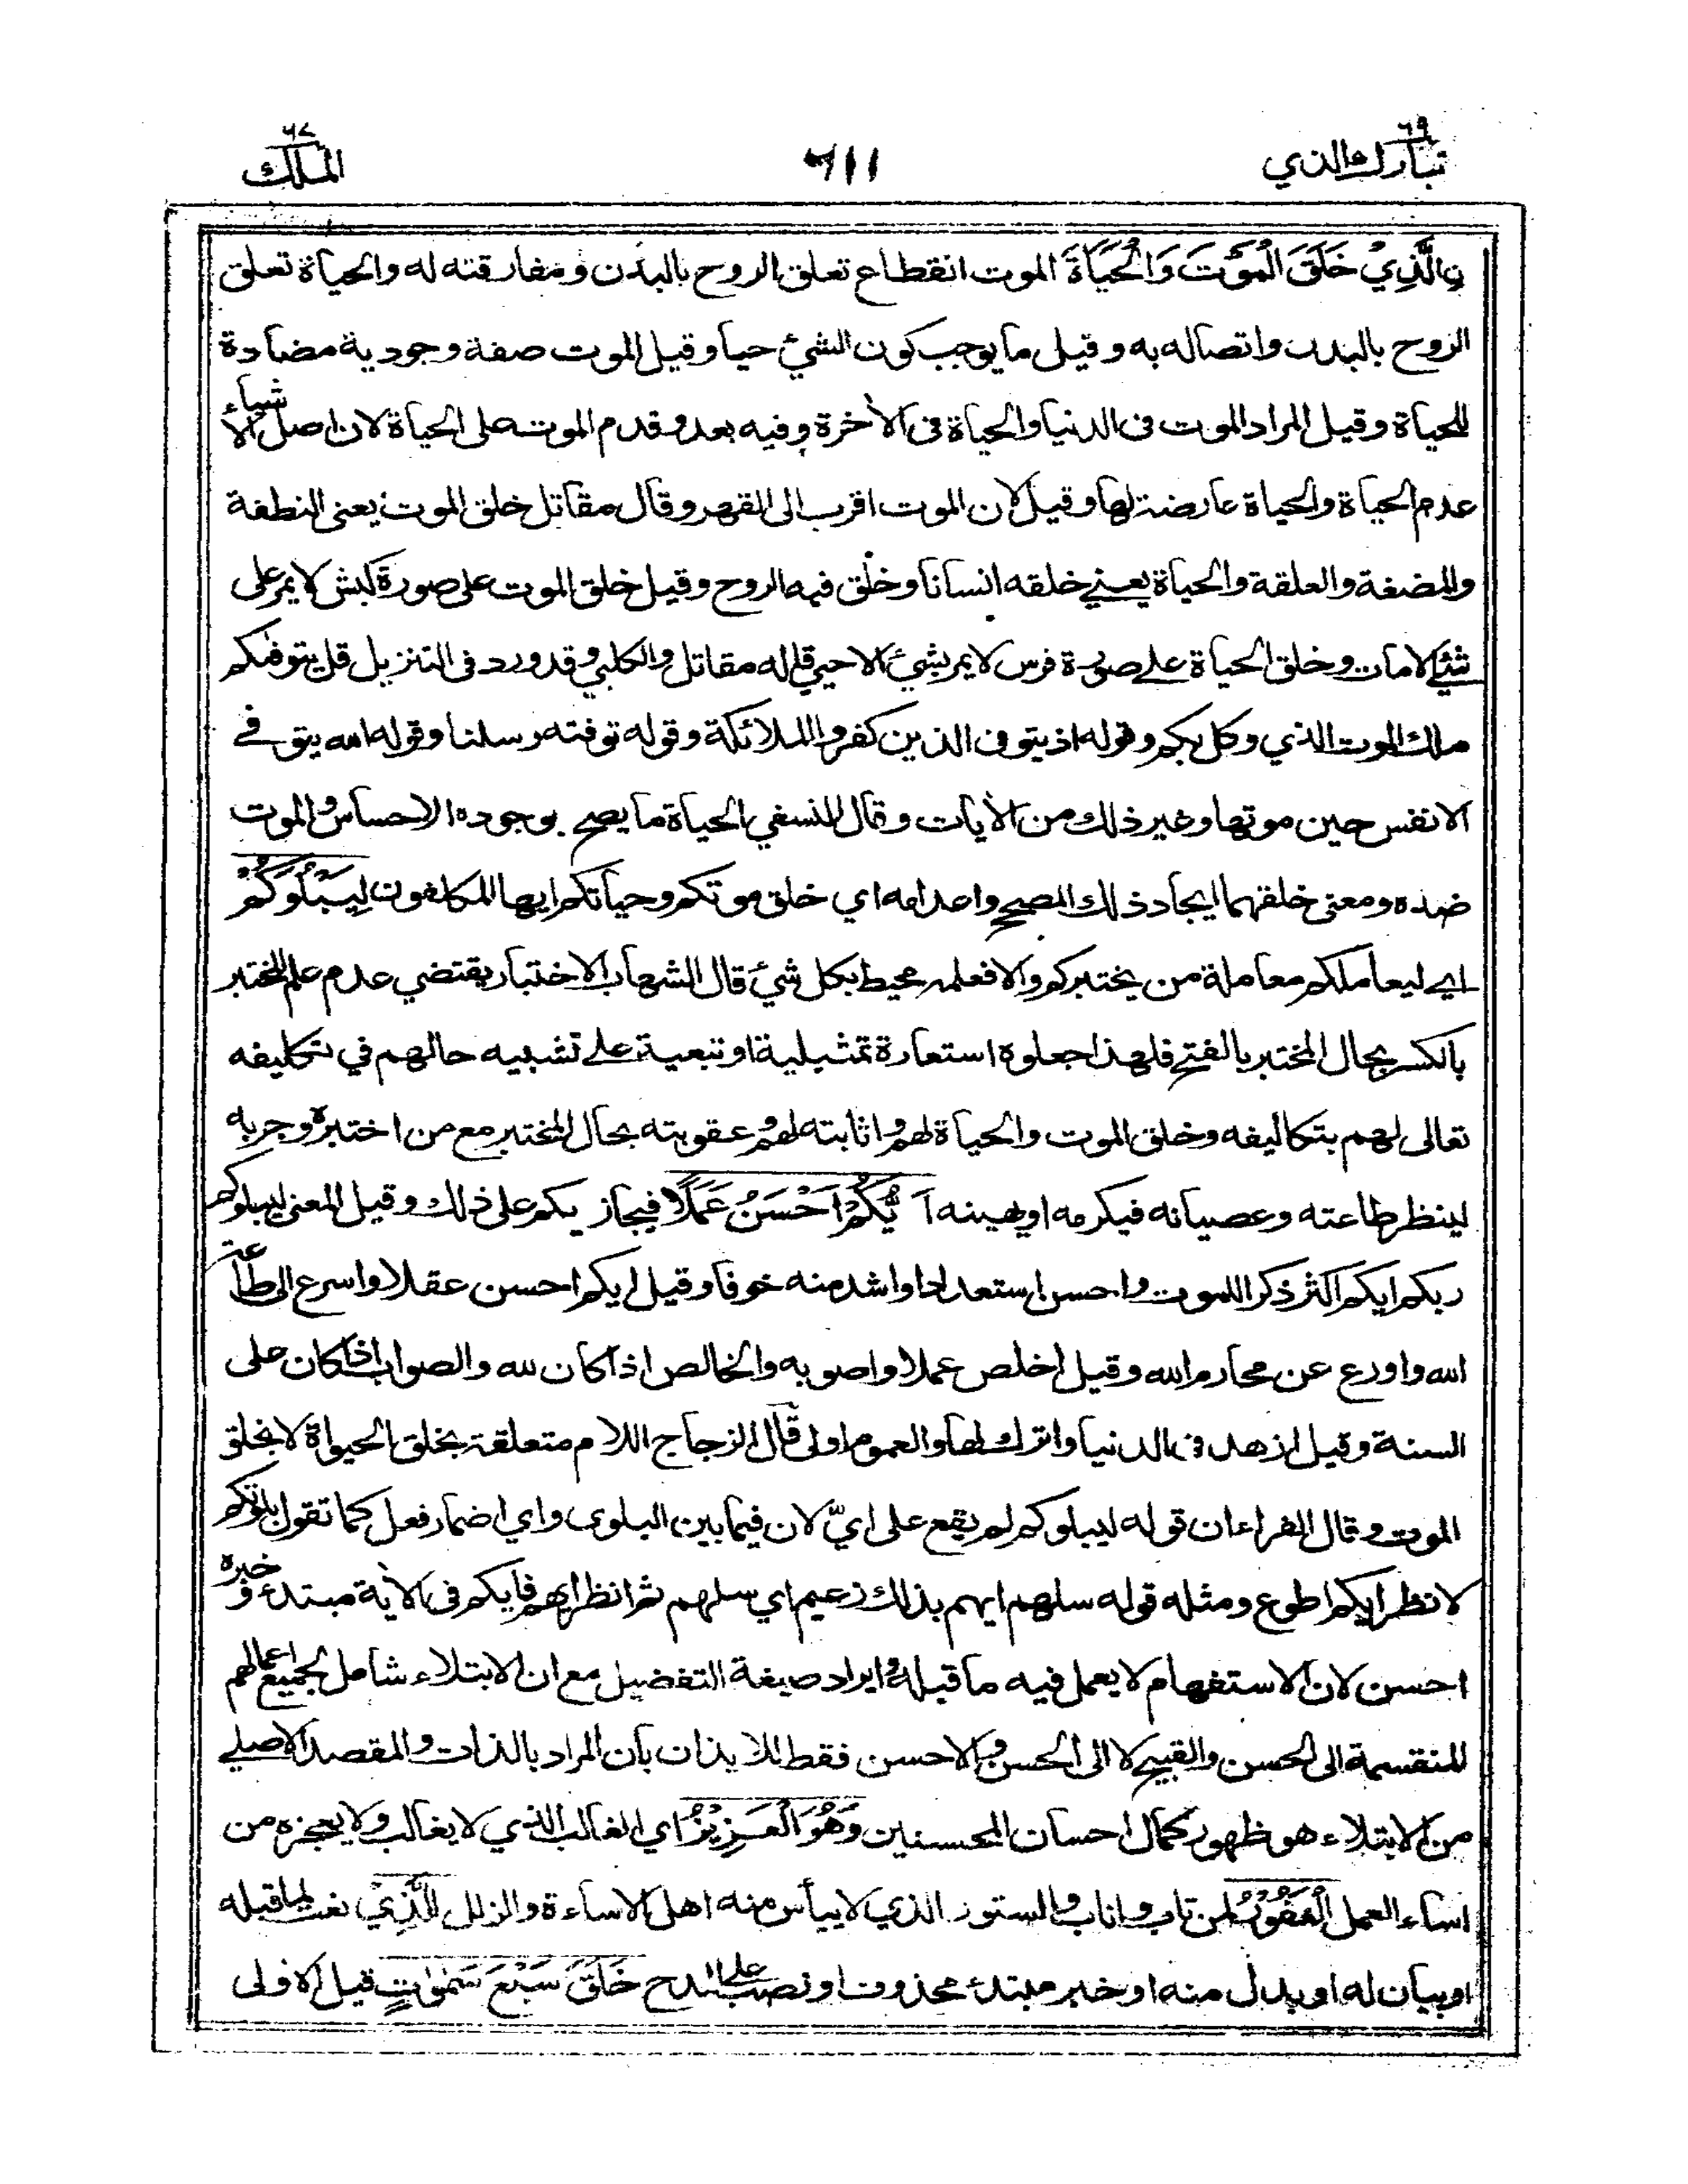 تبارك الذي ٢٩
٦١١
الملك ٦٧
نِ الَّذِيْ خَلَقَ الْمَوْتَ وَالْحَيَاةَ الموت انقطاع تعلق الروح بالبدن ومفارقته له والحياة تعلق
الروح بالبدن واتصاله به وقيل ما يوجب كون الشيء حيا وقيل الموت صفة وجودية مضادة
للحياة وقيل المراد الموت في الدنيا والحياة في الآخرة وفيه بعد وقدم الموت على الحياة لان اصل الاشياء
عدم الحياة والحياة عارضة لها وقيل لان الموت اقرب الى القهر وقال مقاتل خلق الموت يعني النطفة
والمضغة والعلقة والحياة يعني خلقه انسانا وخلق فيه الروح وقيل خلق الموت على صورة كبش لا يمر على
شيء الا مات وخلق الحياة على صورة فرس لا يمر بشيء الا حيي قاله مقاتل والكلبي وقد ورد في التنزيل قل يتوفىكم
ملك الموت الذي وكل بكم وقوله اذ يتوفى الذين كفروا الملائكة وقوله توفته رسلنا وقوله الله يتوفى
الانفس حين موتها وغير ذلك من الآيات وقال النسفي الحياة ما يصح بوجوده الاحساس والموت
ضده ومعنى خلقهما ايجاد ذلك المصحح واعدامه اي خلق موتكم وحياتكم ايها المكلفون لِيَبْلُوَكُمْ
اي ليعاملكم معاملة من يختبركم والا فعلمه محيط بكل شيء قال الشهاب الاختبار يقتضي عدم علم المختبر
بالكسر بحال المختبر بالفتح فلهذا جعلوه استعارة تمثيلية او تبعية على تشبيه حالهم في تكليفه
تعالى لهم بتكاليفه وخلق الموت والحياة لهم واثابته لهم وعقوبته بحال المختبر مع من اختبره وجربه
لينظر طاعته وعصيانه فيكرمه او يهينه اَيُّكُمْ اَحْسَنُ عَمَلًا فيجازيكم على ذلك وقيل المعنى ليبلوكم
ربكم ايكم اكثر ذكرا للموت واحسن استعدادا واشد منه خوفا وقيل ايكم احسن عقلا واسرع الى طاعة
الله واورع عن محارم الله وقيل اخلص عملا واصوبه والخالص اذا كان لله والصواب اذا كان على
السنة وقيل ازهد في الدنيا واترك لها والعموم اولى قال الزجاج اللام متعلقة بخلق الحيوة لا بخلق
الموت وقال الفراء ان قوله ليبلوكم لم يقع على ايّ لان فيما بين البلوى واي اضمار فعل كما تقول بلوتكم
لانظر ايكم اطوع ومثله قوله سلهم ايهم بذلك زعيم اي سلهم ثم انظر ايهم فايكم في الآية مبتدء وخبره
احسن لان الاستفهام لا يعمل فيه ما قبله وايراد صيغة التفضيل مع ان الابتلاء شامل لجميع اعمالهم
المنقسمة الى الحسن والقبيح لا الى الحسن والاحسن فقط للايذان بان المراد بالذات والمقصد الاصلي
من الابتلاء هو ظهور كمال احسان المحسنين وَهُوَ الْعَزِيْزُ اي الغالب الذي لا يغالب ولا يعجزه من
اساء العمل الْغَفُوْرُ لمن تاب واناب والستور الذي لا ييأس منه اهل الاساءة والزلل الَّذِيْ نعت لما قبله
او بيان له او بدل منه او خبر مبتدء محذوف او نصب على المدح خَلَقَ سَبْعَ سَمٰوٰتٍ قيل الاولى